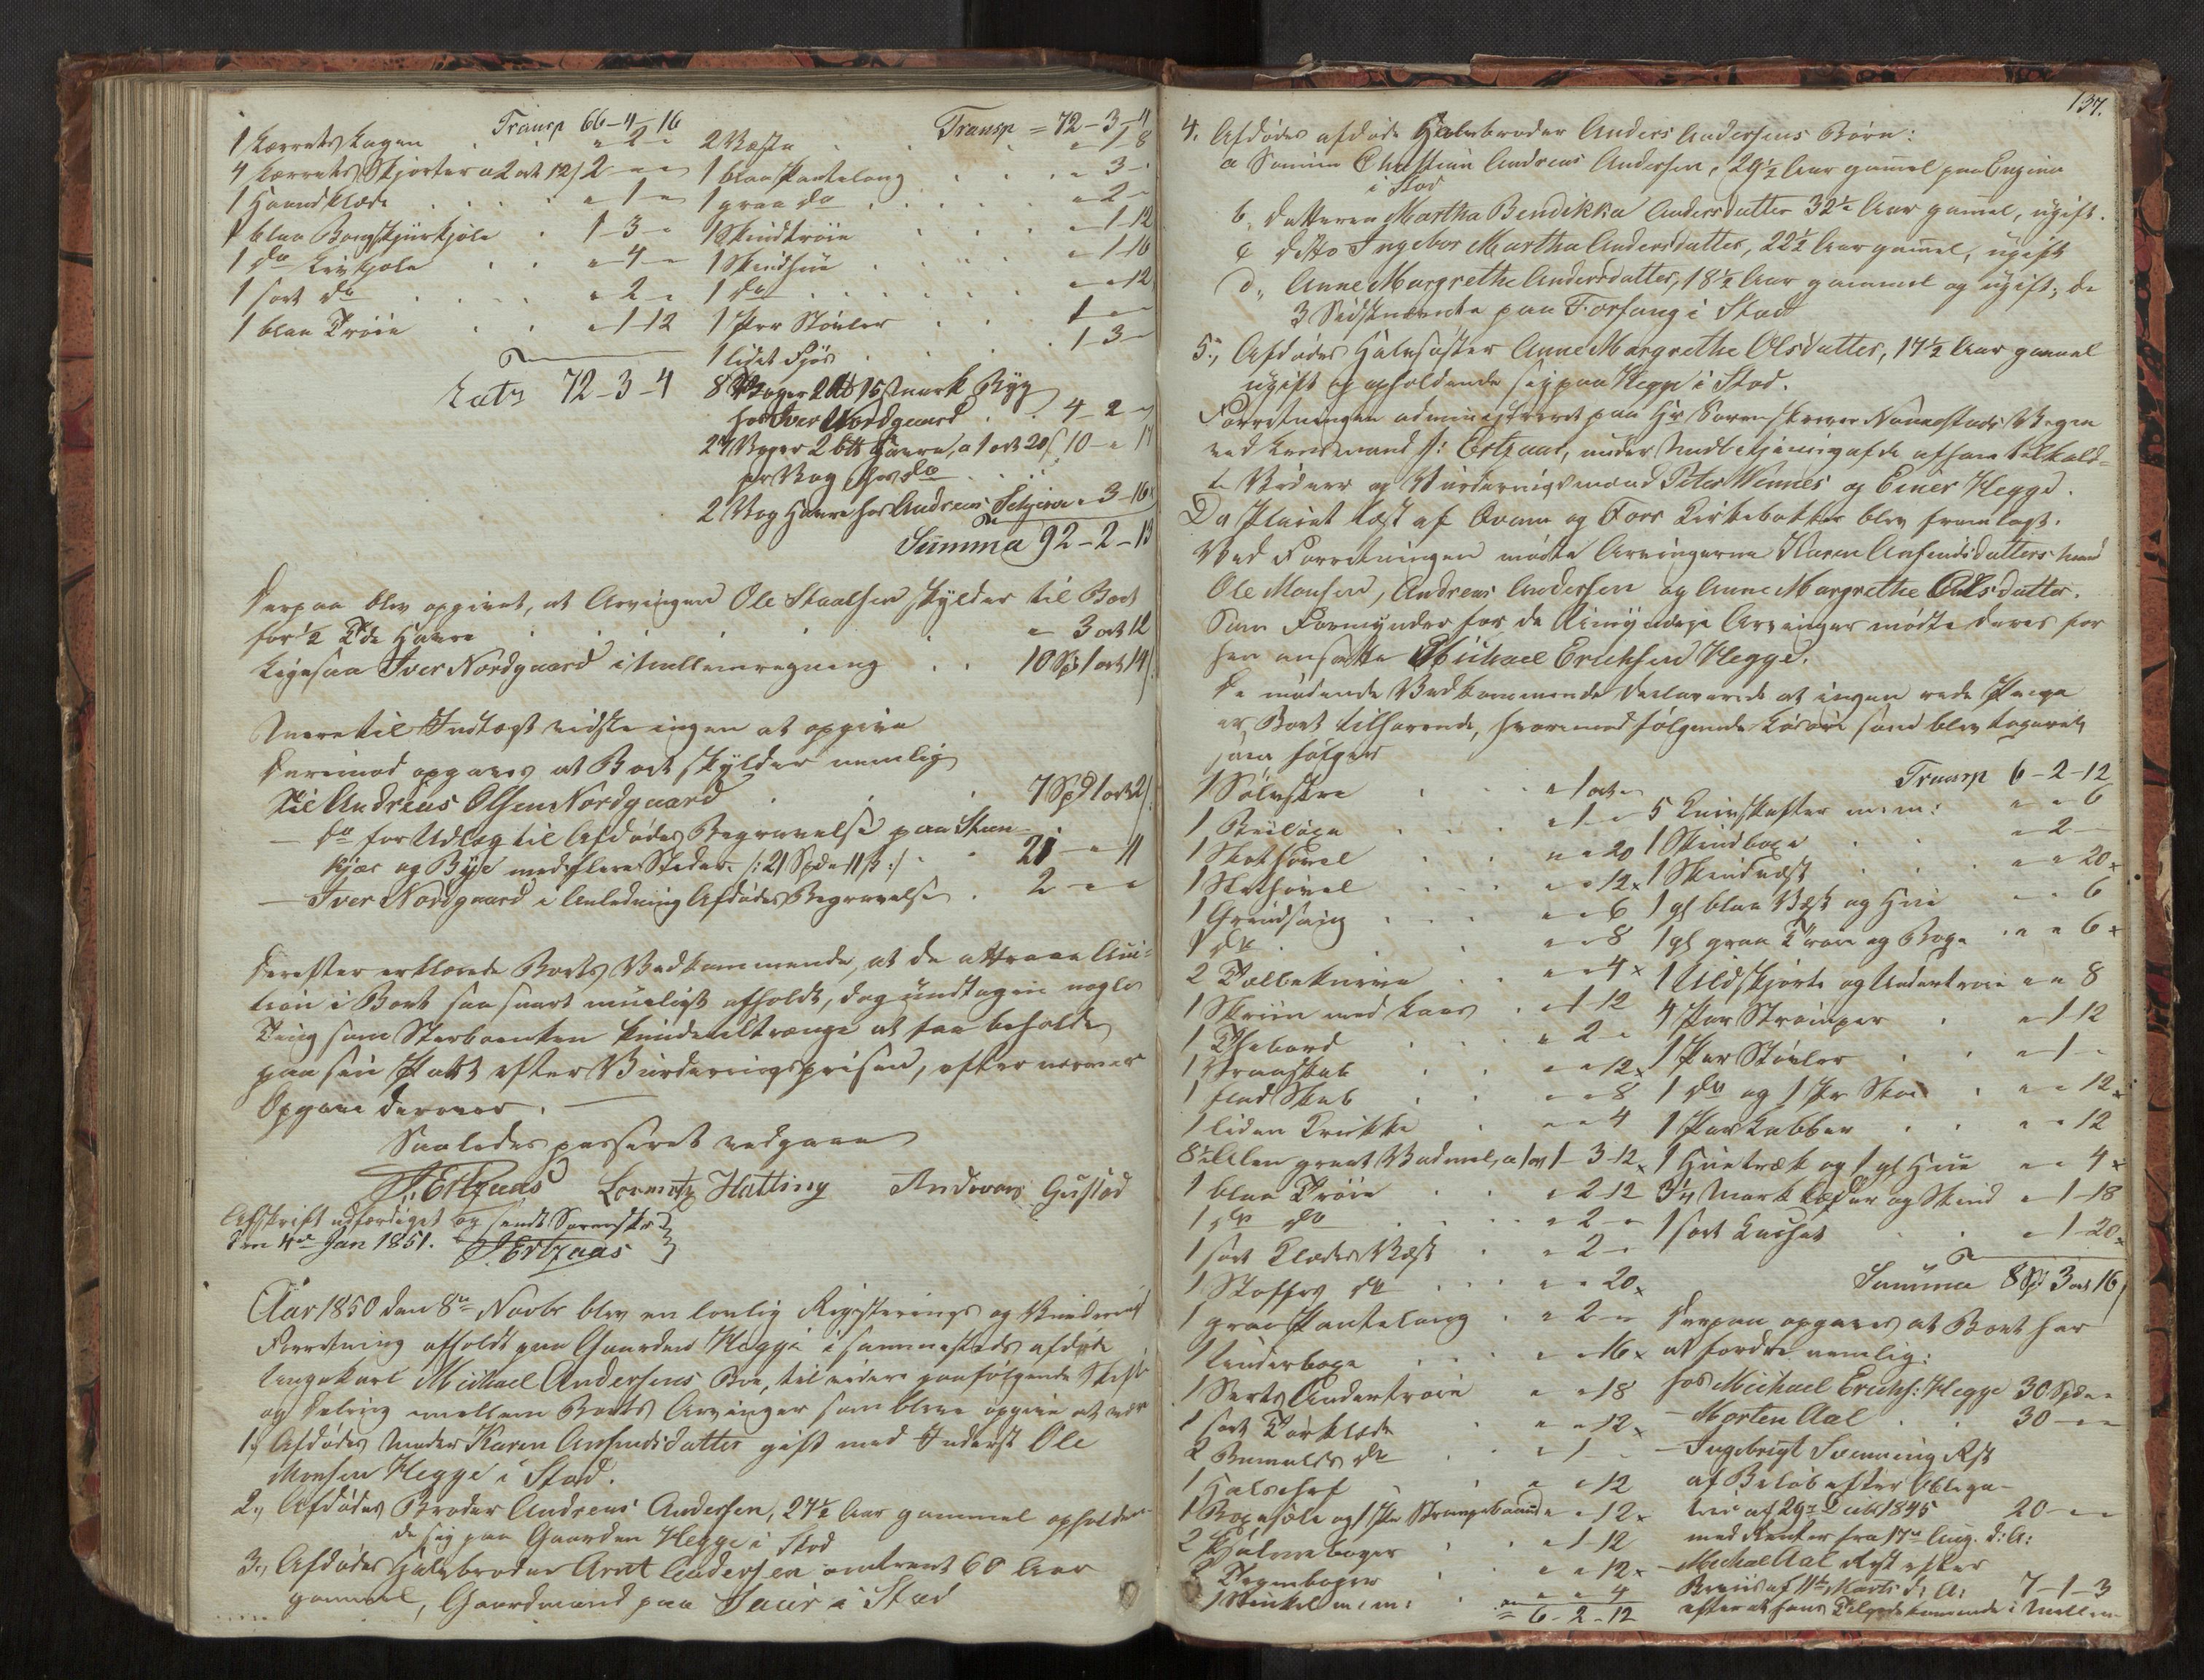 Transp 66-4-16
1 Lærrets Lagen " 2 "
4 Lærrets Skjorter a 2 ort 12 / 2 " "
1 Haandklæde " 1 "
1 blaa Bongskjurkjole 1-3-"
1 do Livkjole " 4 "
1 sort do " 2 "
1 blaa Trøie " 1-12
Lats 72-3-4
Transp = 72-3-4
2 Væste " 1-8
1 blaa Pantelong " 3 -
1 graa do " 2 -
1 Skindtrøie " 1-12
1 Skindhue " 1-16
1 do " " 12
1 Par Støvler 1 " "
1 lidet Fjøs 1-3-
8 Voger 2 Bd 15 Mark Byg
hos Iver Nordgaard 4-2-"
24 Voger 2 Bd Havre, a 1 ort 20 / 10 - " 17
pr Vog hos do
2 Vog Havre hos Andreas " 3-16
Summa 92-2-13
Derpaa blev opgivet, at Arvingen Ole Staalsen skylder til Boet
for 1/2 Tde Havre " 3 ort 12
Ligesaa Iver Nordgaard i Mellemregning 10 Spd 1 ort 14 /
Mere til Indtægt vidste ingen at opgive
Derimod opgaves at Boet skylder nemlig
Til Andreas Olsen Nordgaard 7 Spd 1 ort 2 /
— do for Udlæg til Afdødes Begravelse paa Steen-
kjær og Bye med flere Steder /: 21 Spd " 11 s :/ 21 - " 11
— Iver Nordgaard i Anledning Afdødes Begravelse 2 - " "
Derefter erklærede Boets Vedkommende, at de attraae Auc-
tion i Boet saa snart mueligt afholdt, dog undtagen nogle
Ting som Sterboenken kunde tiltrænge at faa beholde
paa sin Part efter Vurderingsprisen, efter nærmere
Opgave derover.
Saaledes passeret vedgaaes
P. Ertzaas Lorentz Hatling Andreas Gustad
Afskrift udfærdiget og sendt Sorenskr.
den 4de Jan 1851. P. Ertzaas
Aar 1850 den 8de Novbr blev en lovlig Registerings og Vurderings
Forretning afholdt paa Gaarden Hegge i sammesteds afdøde
Ungekarl Michael Andersens Boe, til videre paafølgende Skifte
og Deling mellem Boets Arvinger som bleve opgivne at være
1, Afdødes Moder Karen Arnfindsdatter gift med Inderst Ole
Monsen Hegge i Stod.
2, Afdødes Broder Andreas Andersen, 27½ Aar gammel opholden-
de sig paa Gaarden Hegge i Stod
3, Afdødes Halvbroder Arnt Andersen omtrent 60 Aar
gammel, Gaardmand paa i Stod
137.
4. Afdødes afdøde Halvbroder Anders Andersens Børn:
a Sønnen Christian Andreas Andersen, 29½ Aar gammel paa Qugina
i Stod
b, Datteren Martha Bendikka Andersdatter 32½ Aar gammel, ugift.
c ditto Ingebor Martha Andersdatter, 22½ Aar gammel, ugift
d, Anne Margrethe Andersdatter, 18½ Aar gammel og ugift; de
3 Sidstnævnte paa Forfang i Stod
5, Afdødes Halvsøster Anne Margrethe Olsdatter, 17½ Aar gammel
ugift og opholdende sig paa Hegge i Stod.
Forretningen administreret paa Hr Sorenskriver Naumestads Vegne
ved Lensmand P: Ertzaas, under Medbetjening af de afham tilkald-
te Vidner og Vurderingsmænd Peter Vennes og Einer Hegge.
Da Placat læst af Qvam og Foss Kirkebakker blev fremlagt.
Ved Forretningen mødte Arvingerne Karen Arnfindsdatters Mand
Ole Monsen, Andreas Andersen og Anne Margrethe Olsdatter.
Som Formynder for de Umyndige Arvinger mødte deres for
hen ansatte Michael Erichsen Hegge.
De mødende Vedkommende declarerede at ingen rede Penge
er Boet tilhørende, hvormed følgende Løsøre som blev taxeret
som følger
1 Sølvskee " 1 ort "
1 Bulöxe " 1 "
1 Skothøvel " " 20
1 Slethøvel " " 12 x
1 Grindsaug " " 6
1 do " " 8
2 Tællekniver " " 4 x
1 Skriin med Laas " 1-12
1 Thebord " 2 "
1 Vraaskab " " 12 x
1 flad Skab " " 8
1 liden Krukke " " 4
8½ Alen graat Vadmel, a 1 ort 1-3-12 x
1 blaa Trøie " 2-12
1 do do " 2 "
1 sort Klædes Vest " 2 "
1 Stoffes do " " 20 x
1 graa Pantelong " 2 "
1 Underboxe " " 16 x
1 Serts Undertrøie " " 18
1 sort Tørklæde " " 12 x
2 Bomulds do " 1 "
1 Halschef " " 12
1 Boxesæle og 1 Par Strømpebaand " " 12 x
2 Psalmebøger " 1-12
2 " " 12 x
1 Vinkel m: m: " " 4
= 6-2-12
Transp 6-2-12
5 Knivskafter m: m: " " 6
1 Skindboxe " 2 -
1 Skindvest " " 20 x
1 gl blaa Vest og Hue " " 6
1 gl graa Trøie og Boxe " " 6 x
1 Uldskjorte og Undertrøie " " 8
4 Par Strømper " 1-12
1 Par Støvler " 1 -
1 do og 1 Pr Skoe " " 12 x
1 Par Labber " " 12
1 Huetræk og 1 gl Hue " " 4 x
3¼ Mark Læder og Skind " 1-18
1 sort Kashet " 1-20 x
Summa 8 Spd 3 ort 16 /
Derpaa opgaves at Boet har
at fordre nemlig:
hos Michael Erichs: Hegge 30 Spd " "
— Morten Aal 30 - " "
— Ingebrigt Svenning Rst
af Beløb efter Obliga-
tion af 29de Decbr 1845 20 - " "
med Renter fra 17de Aug. d: A:
— Michael Aal Rest efter
Beviis af 11te Marts d: A: 7-1-3
efter at hans Tilgodekommende i Mellem-